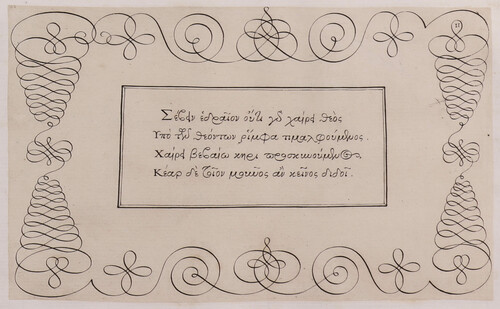 11
Σέβειν ἑδραῖον οὔτι γὰρ χαίρει θεὸς
Ὑπὸ τῶν θεόντων ῥίμφα τιμαλφούμενος.
Χαίρει βεβαίῳ κηρι προσκυνούμενος,
Κέαρ δὲ τοῖον μοῦνος ἂν κεῖνος διδοῖ.